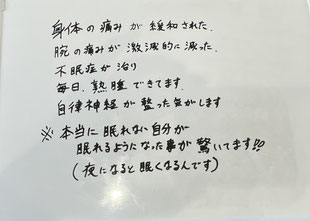 身体の痛みが緩和された.
腕の痛みが激減的に減った.
不眠症が治り
毎日、熟睡できてます.
自律神経が整った気がします
※本当に眠れない自分が
眠れるようになった事が驚いてます!!
(夜になると眠くなるんです)